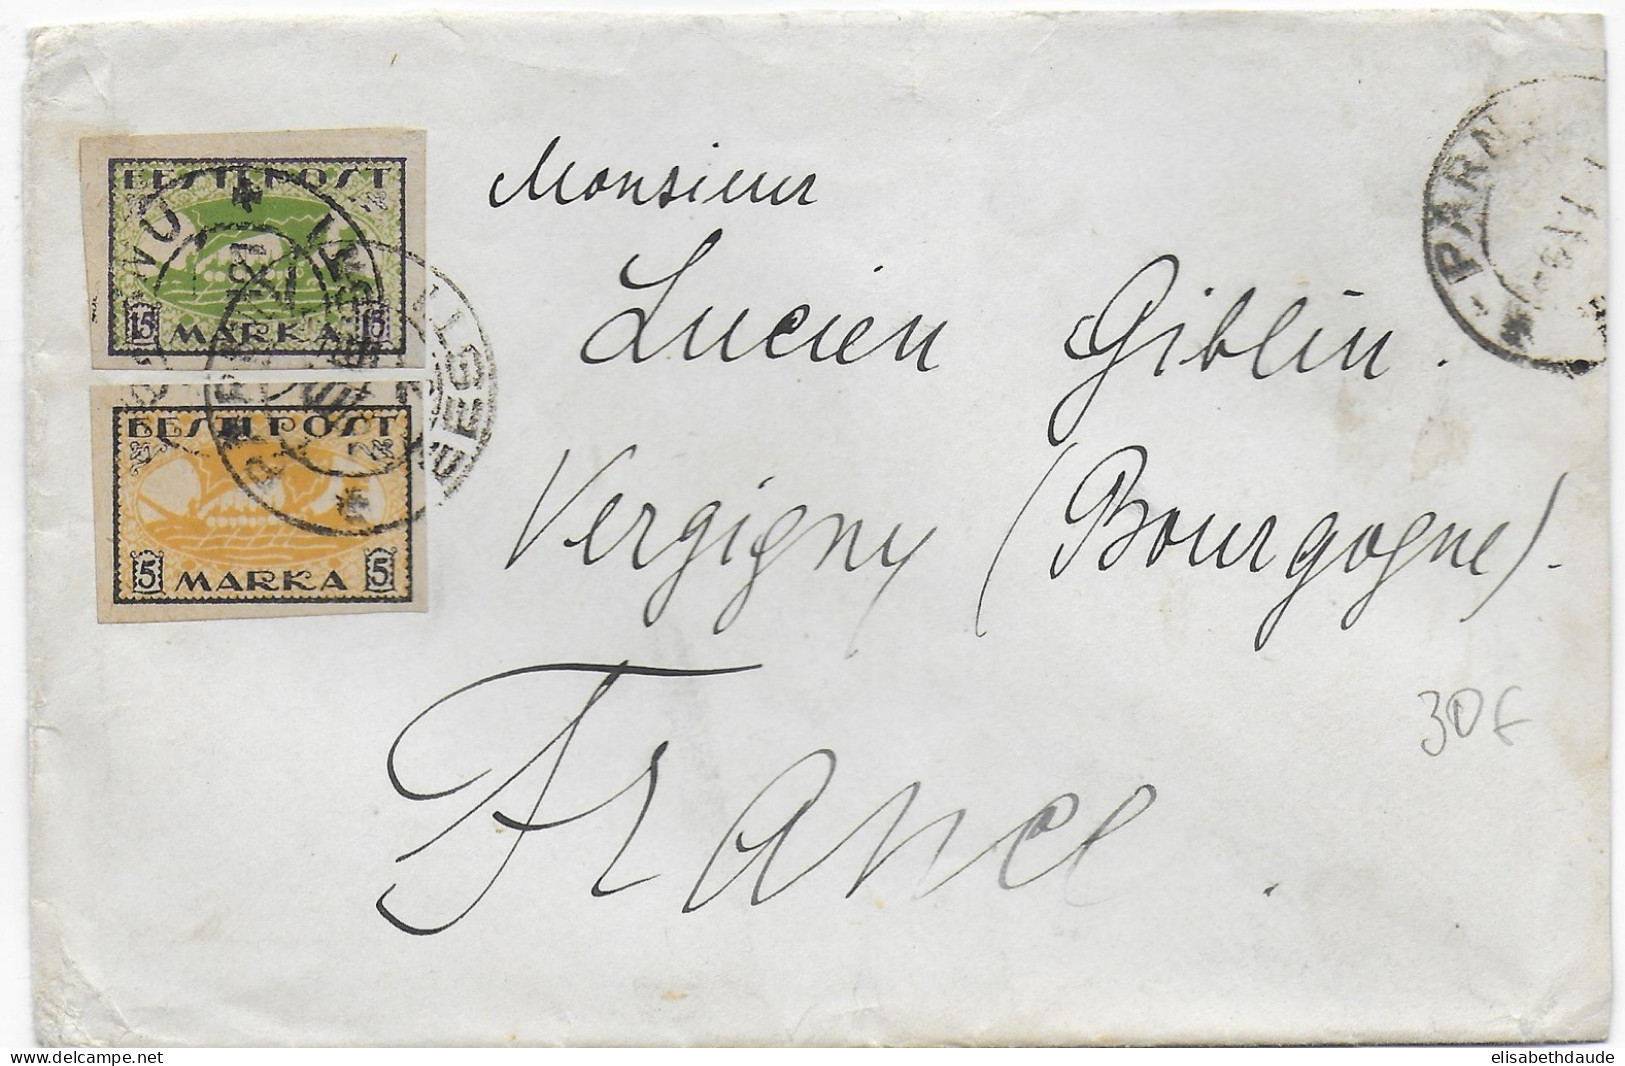 EESTI POST
15 MARKA 15
EESTI POST
5 MARKA 5
Monsieur
Lucien Giblin.
Vergigny (Bourgogne).
France.
30€
www.delcampe.net
elisabethdaude